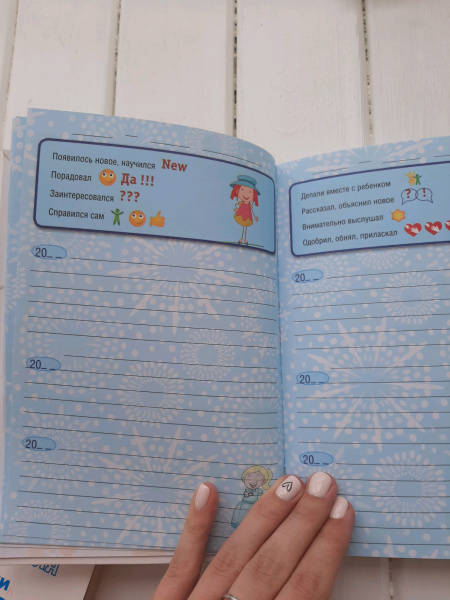 Появилось новое, научился New
Порадовал Да !!!
Заинтересовался ???
Справился сам
20_ _
20_ _
20_ _
Делали вместе с ребенком
Рассказал, объяснил новое ? !
Внимательно выслушал
Одобрил, обнял, приласкал
20_ _
20_ _
20_ _